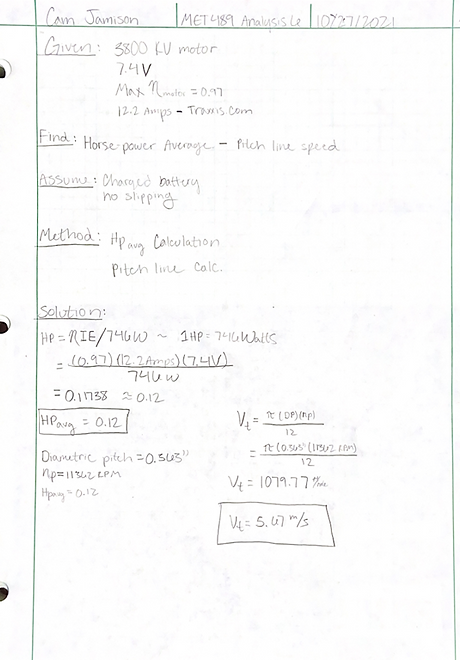 Cam Jamison MET 489 Analysis 6 10/27/2021
Given: 3800 KV motor
7.4V
Max η motor = 0.97
12.2 Amps - Traxxas.com
Find: Horse power Average - Pitch line speed
Assume: Charged battery
no slipping
Method: Hp avg Calculation
Pitch line Calc.
Solution:
HP = ηIE/746W ~ 1HP = 746 Watts
= (0.97)(12.2 Amps)(7.4V)
746 W
= 0.1738 ≈ 0.12
HP avg = 0.12
Diametric pitch = 0.363"
np = 11362 RPM
Hp avg = 0.12
Vt = π(DP)(np)
12
= π(0.363")(11362 RPM)
12
Vt = 1079.77 ft/min
Vt = 5.47 m/s